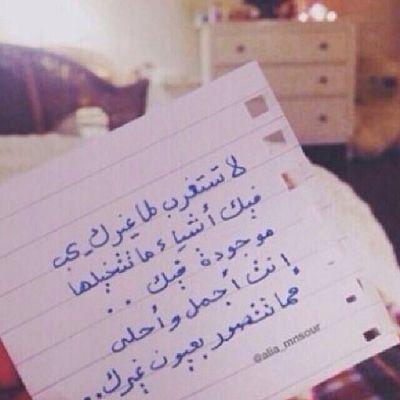 لا تستغرب لما غيرك يحب
فيك أشياء ما تتخيلها
موجودة فيك ..
انت أجمل وأحلى
مما تتصور بعيون غيرك..
@alia_mnsour